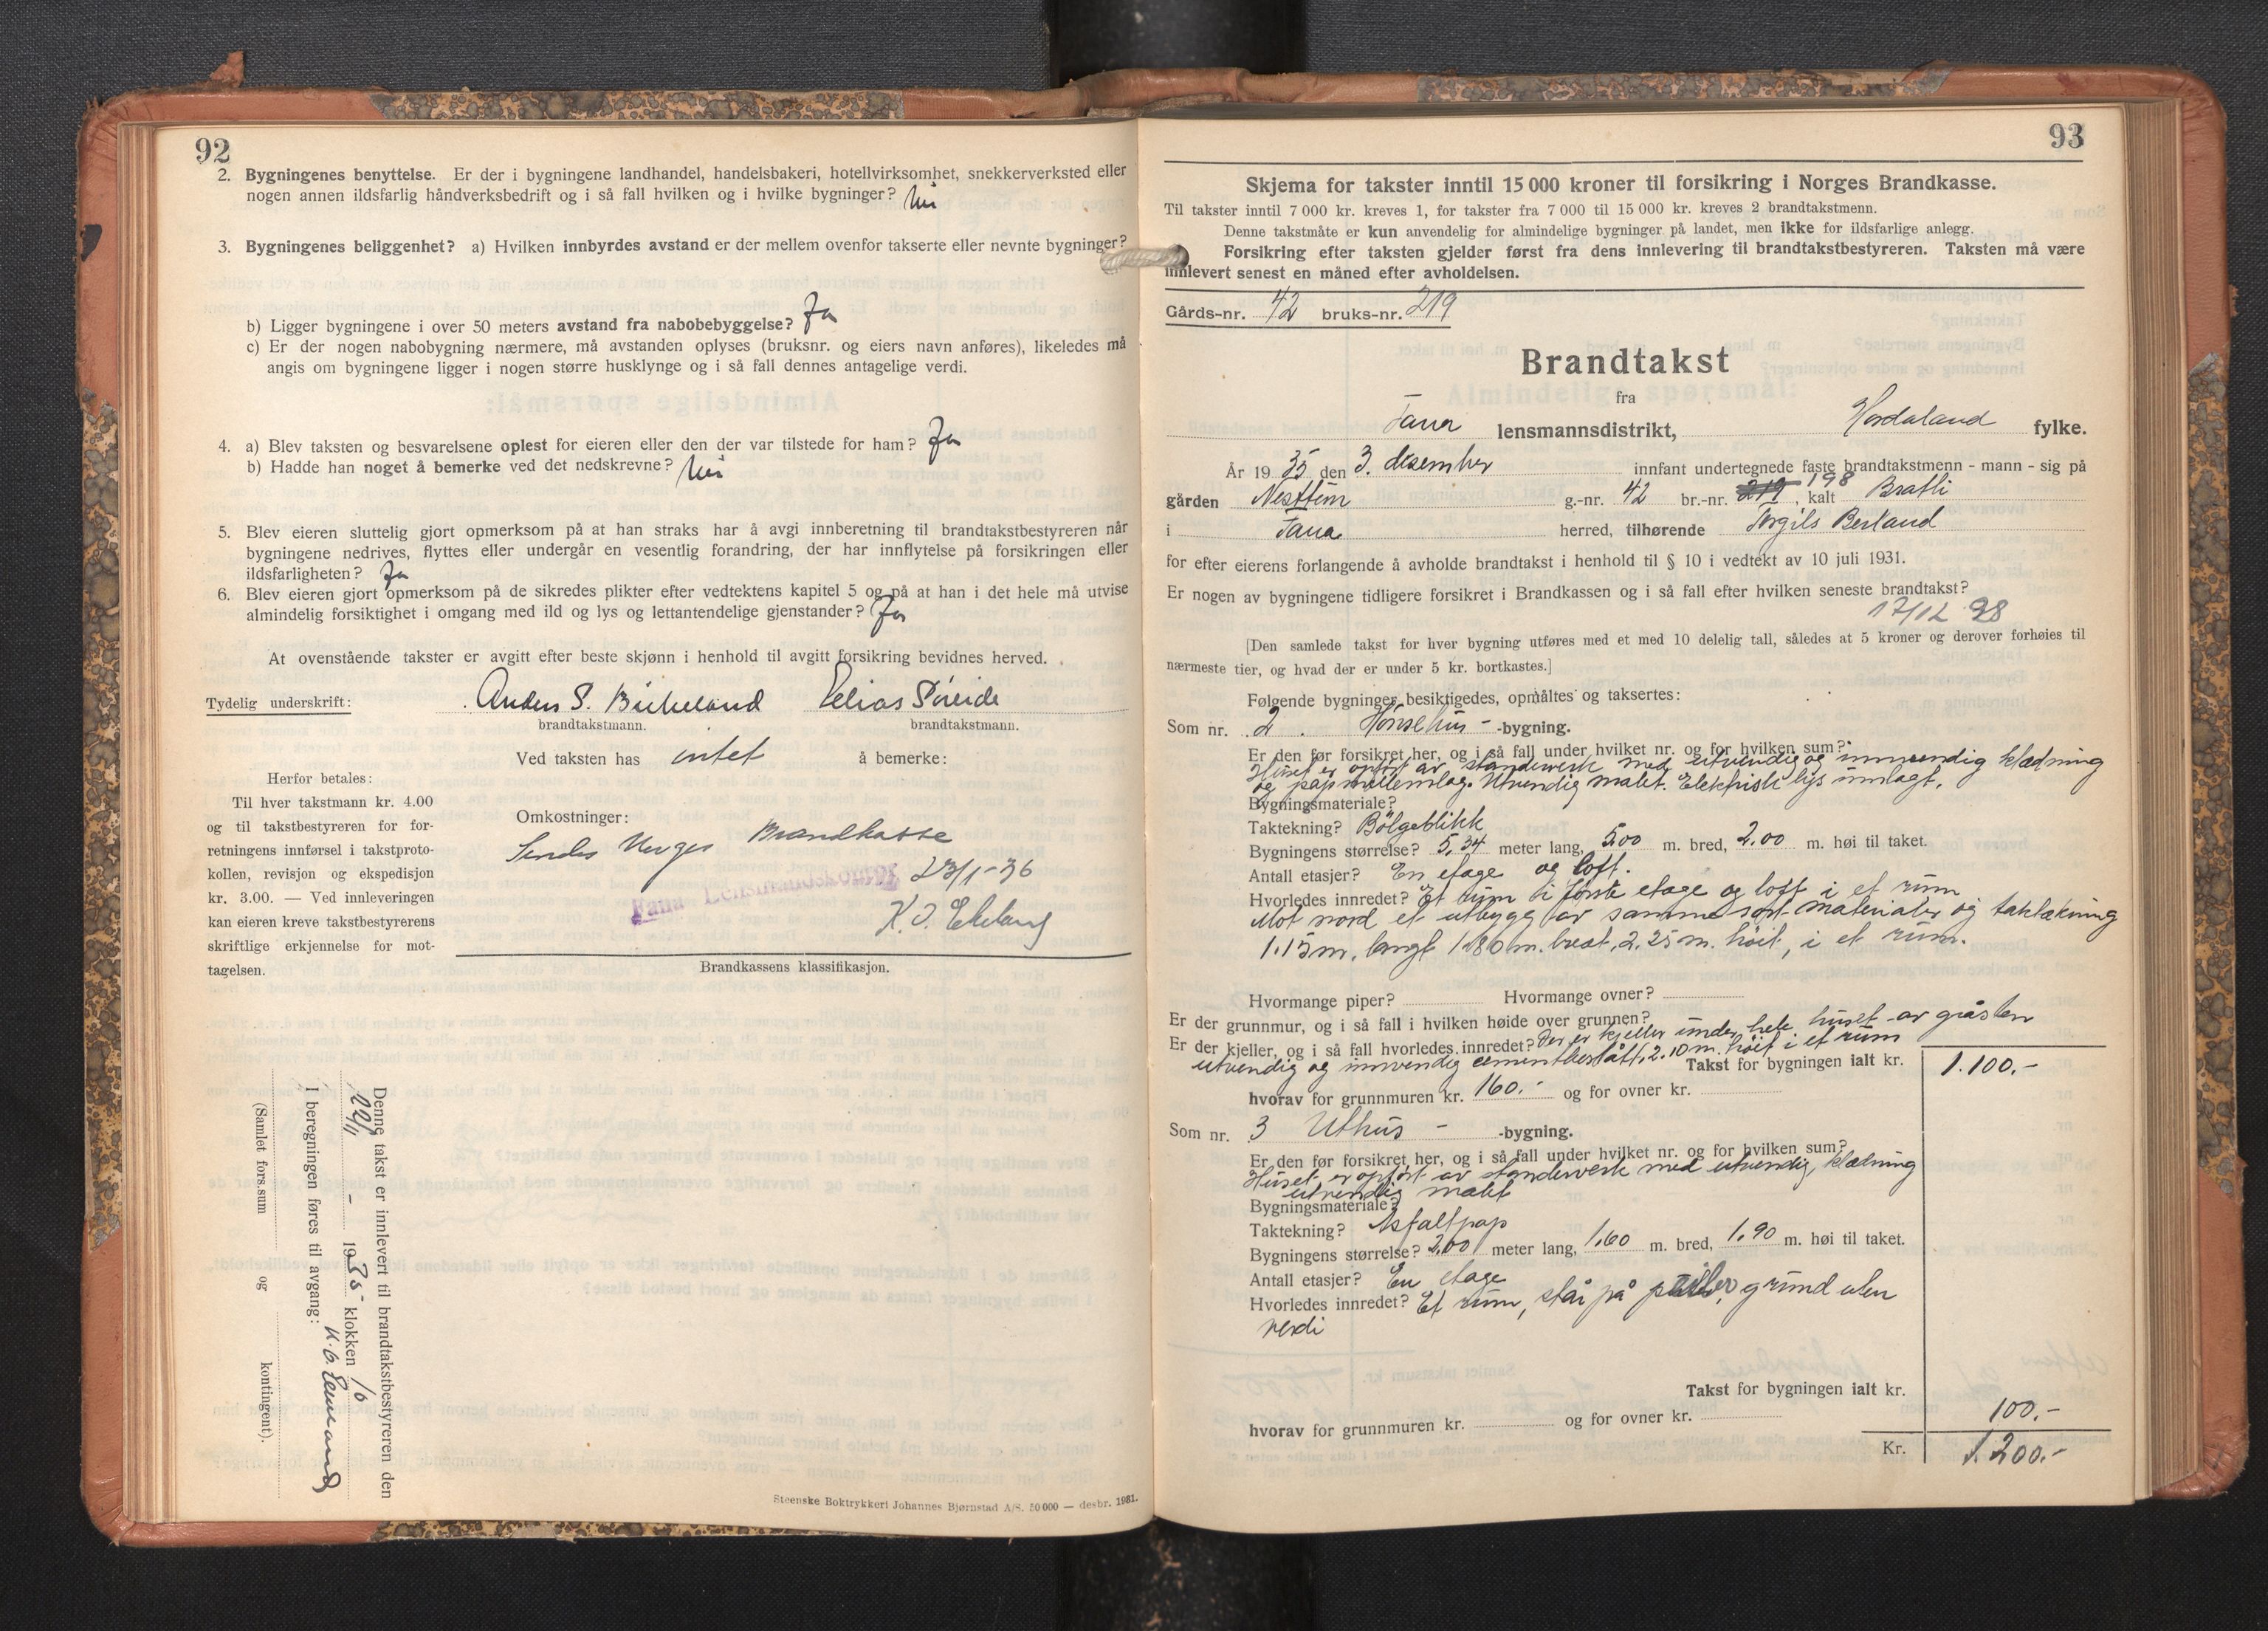 92
2. Bygningenes benyttelse. Er der i bygningene landhandel, handelsbakeri, hotellvirksomhet, snekkerverksted eller
nogen annen ildsfarlig håndverksbedrift og i så fall hvilken og i hvilke bygninger? Nei
3. Bygningenes beliggenhet? a) Hvilken innbyrdes avstand er der mellem ovenfor takserte eller nevnte bygninger?
b) Ligger bygningene i over 50 meters avstand fra nabobebyggelse? Ja
c) Er der nogen nabobygning nærmere, må avstanden oplyses (bruksnr. og eiers navn anføres), likeledes må
angis om bygningene ligger i nogen større husklynge og i så fall dennes antagelige verdi.
4. a) Blev taksten og besvarelsene oplest for eieren eller den der var tilstede for ham? Ja
b) Hadde han noget å bemerke ved det nedskrevne? Nei
5. Blev eieren sluttelig gjort opmerksom på at han straks har å avgi innberetning til brandtakstbestyreren når
bygningene nedrives, flyttes eller undergår en vesentlig forandring, der har innflytelse på forsikringen eller
ildsfarligheten? Ja
6. Blev eieren gjort opmerksom på de sikredes plikter efter vedtektens kapitel 5 og på at han i det hele må utvise
almindelig forsiktighet i omgang med ild og lys og lettantendelige gjenstander? Ja
At ovenstående takster er avgitt efter beste skjønn i henhold til avgitt forsikring bevidnes herved.
Tydelig underskrift: Anders S. Birkeland Elias Søreide
brandtakstmann. brandtakstmann.
Ved taksten has intet å bemerke:
Herfor betales:
Til hver takstmann kr. 4.00
og til takstbestyreren for for-
retningens innførsel i takstproto-
kollen, revisjon og ekspedisjon
kr. 3.00. — Ved innleveringen
kan eieren kreve takstbestyrerens
skriftlige erkjennelse for mot-
tagelsen.
Omkostninger:
Sendes Norges Brandkasse
Fana Lensmandskontor 23/1-36
Brandkassens klassifikasjon.
Denne takst er innlevert til brandtakstbestyreren den
29/11 - 1935 klokken 10
I beregningen føres til avgang:
(Samlet fors.sum og kontingent).
Steenske Boktrykkeri Johannes Bjørnstad A/S. 50 000 — desbr. 1931.
93
Skjema for takster inntil 15 000 kroner til forsikring i Norges Brandkasse.
Til takster inntil 7 000 kr. kreves 1, for takster fra 7 000 til 15 000 kr. kreves 2 brandtakstmenn.
Denne takstmåte er kun anvendelig for almindelige bygninger på landet, men ikke for ildsfarlige anlegg.
Forsikring efter taksten gjelder først fra dens innlevering til brandtakstbestyreren. Taksten må være
innlevert senest en måned efter avholdelsen.
Gårds-nr. 42 bruks-nr. 219
Brandtakst
fra
Fana lensmannsdistrikt, Hordaland fylke.
År 1935 den 3. desember innfant undertegnede faste brandtakstmenn - mann - sig på
gården Nesttun g.-nr. 42 br.-nr. 219 198, kalt Bratli
i Fana herred, tilhørende Torgils Berland
for efter eierens forlangende å avholde brandtakst i henhold til § 10 i vedtekt av 10 juli 1931.
Er nogen av bygningene tidligere forsikret i Brandkassen og i så fall efter hvilken seneste brandtakst?
17/12 28
[Den samlede takst for hver bygning utføres med et med 10 delelig tall, således at 5 kroner og derover forhøies til
nærmeste tier, og hvad der er under 5 kr. bortkastes.]
Følgende bygninger besiktigedes, opmåltes og taksertes:
Som nr. 2. Hønsehus- -bygning.
Er den før forsikret her, og i så fall under hvilket nr. og for hvilken sum?
Huset er opført av standerverk med utvendig og innvendig klædning
og pap mellemlag. Utvendig malet. Elektrisk lys innlagt.
Bygningsmateriale?
Taktekning? Bölgeblikk
Bygningens størrelse? 5,34 meter lang, 5.00 m. bred, 2.00 m. høi til taket.
Antall etasjer? En etage og loft.
Hvorledes innredet? Et rum i første etage og loft i et rum
Mot nord et utbygg av samme sort materialer og taktækning
1.15 m. langt 1.80 m. bredt, 2.25 m. höit, i et rum.
Hvormange piper? Hvormange ovner?
Er der grunnmur, og i så fall i hvilken høide over grunnen?
Er der kjeller, og i så fall hvorledes innredet? Der er kjeller under hele huset av gråsten
utvendig og innvendig cementbeslått, 2.10 m. höit i et rum
Takst for bygningen ialt kr. 1.100.-
hvorav for grunnmuren kr. 160.- og for ovner kr.
Som nr. 3 Uthus - -bygning.
Er den før forsikret her, og i så fall under hvilket nr. og for hvilken sum?
Huset er opført av standerverk med utvendig klædning
utvendig malet
Bygningsmateriale?
Taktekning? Asfaltpap
Bygningens størrelse? 2,00 meter lang, 1,60 m. bred, 1,90 m. høi til taket.
Antall etasjer? En etage
Hvorledes innredet? Et rum, står på piller, grund uten
verdi
Takst for bygningen ialt kr.
100.-
hvorav for grunnmuren kr. og for ovner kr.
Kr. 1.200.-